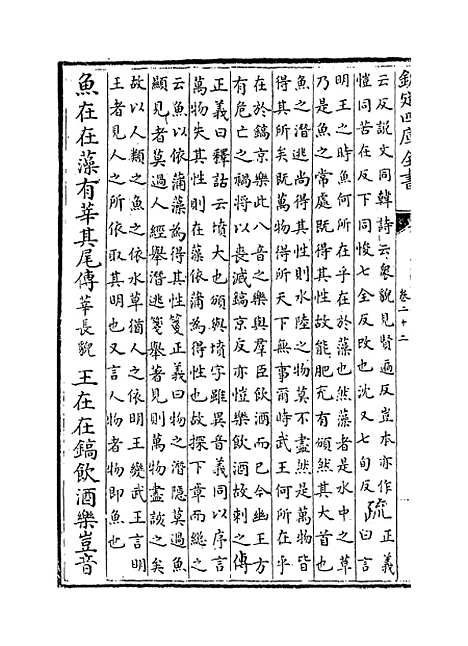 欽定四庫全書
卷二十二
云反説文同韓詩云衆貌見賢遍反豈本亦作
愷同苦在反下同悛七全反改也沈又七旬反
疏
正義
曰言
明王之時魚何所在乎在於藻也然藻者是水中之草
乃是魚之常處既得其性故能肥充有頒然其大首也
魚之潛逃尚得其性則水陸之物莫不盡然是萬物皆
得其所矣既萬物得所天下無事爾時武王何所在乎
在於鎬京樂此八音之樂與羣臣飲酒而已今幽王方
有危亡之禍將以喪滅鎬京反亦愷樂飲酒故刺之傳
正義曰釋詁云墳大也頒與墳字雖異音義同以序言
萬物失其性則在藻依蒲為得性也故探下章而總之
云魚以依蒲藻為得其性箋正義曰物之潛隱莫過魚
顯見者莫過人經舉潛逃箋舉著見則萬物盡該之矣
故以人類之魚之依水草猶人之依明王變武王言明
王者見人之所依取其明也又言人物者物即魚也
魚在在藻有莘其尾傳莘長貌王在在鎬飲酒樂豈音